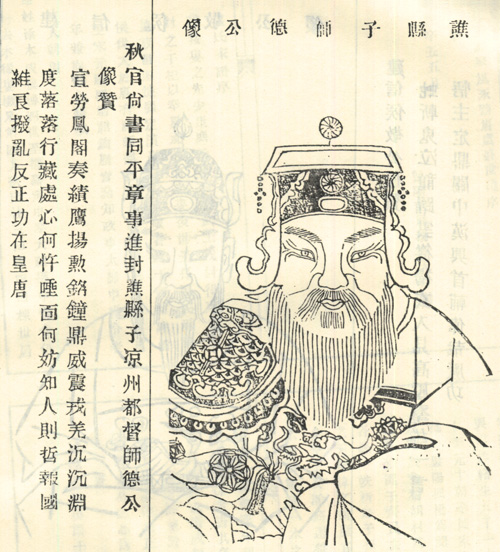 譙縣子師德公像
秋官尚書同平章事進封譙縣子凉州都督師德公
像贊
宜勞鳳閣奏績鷹揚勲銘鐘鼎威震戎羌沉沉淵
度落落行藏處心何忤唾面何妨知人則哲報國
維良撥亂反正功在皇唐